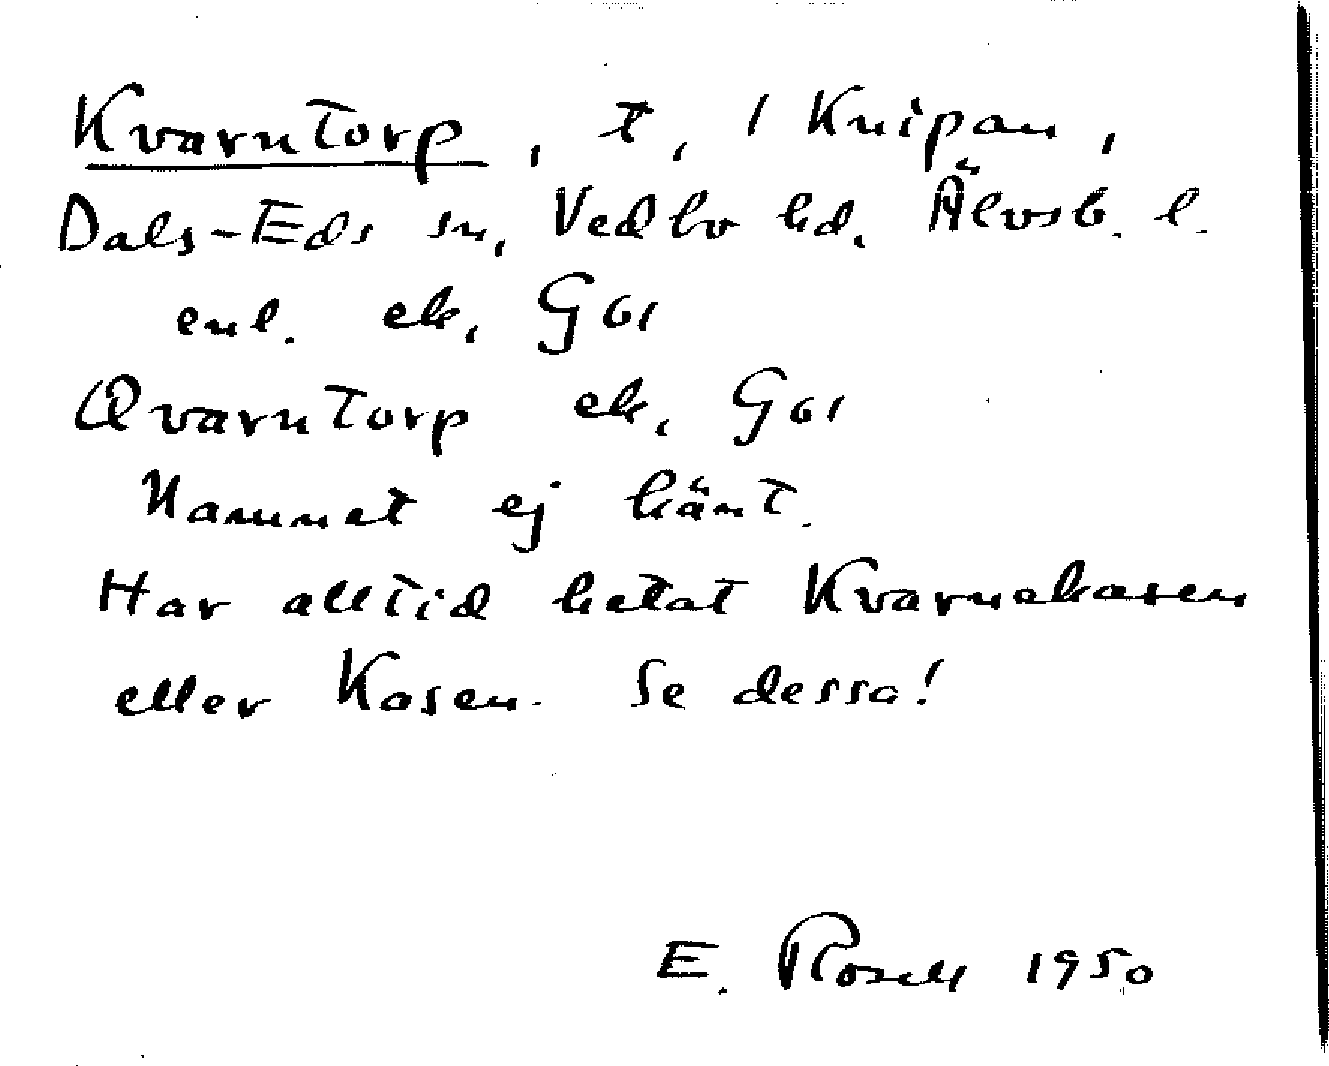 Kvarntorp, t, / Knipan,
Dals-Eds sn, Vedbo hd. Älvsb. l.
enl. ek, G61
Qvarntorp ek, G61
Namnet ej känt.
Har alltid hetat Kvarnekasen
eller Kasen. Se dessa!
E. Rosell 1950